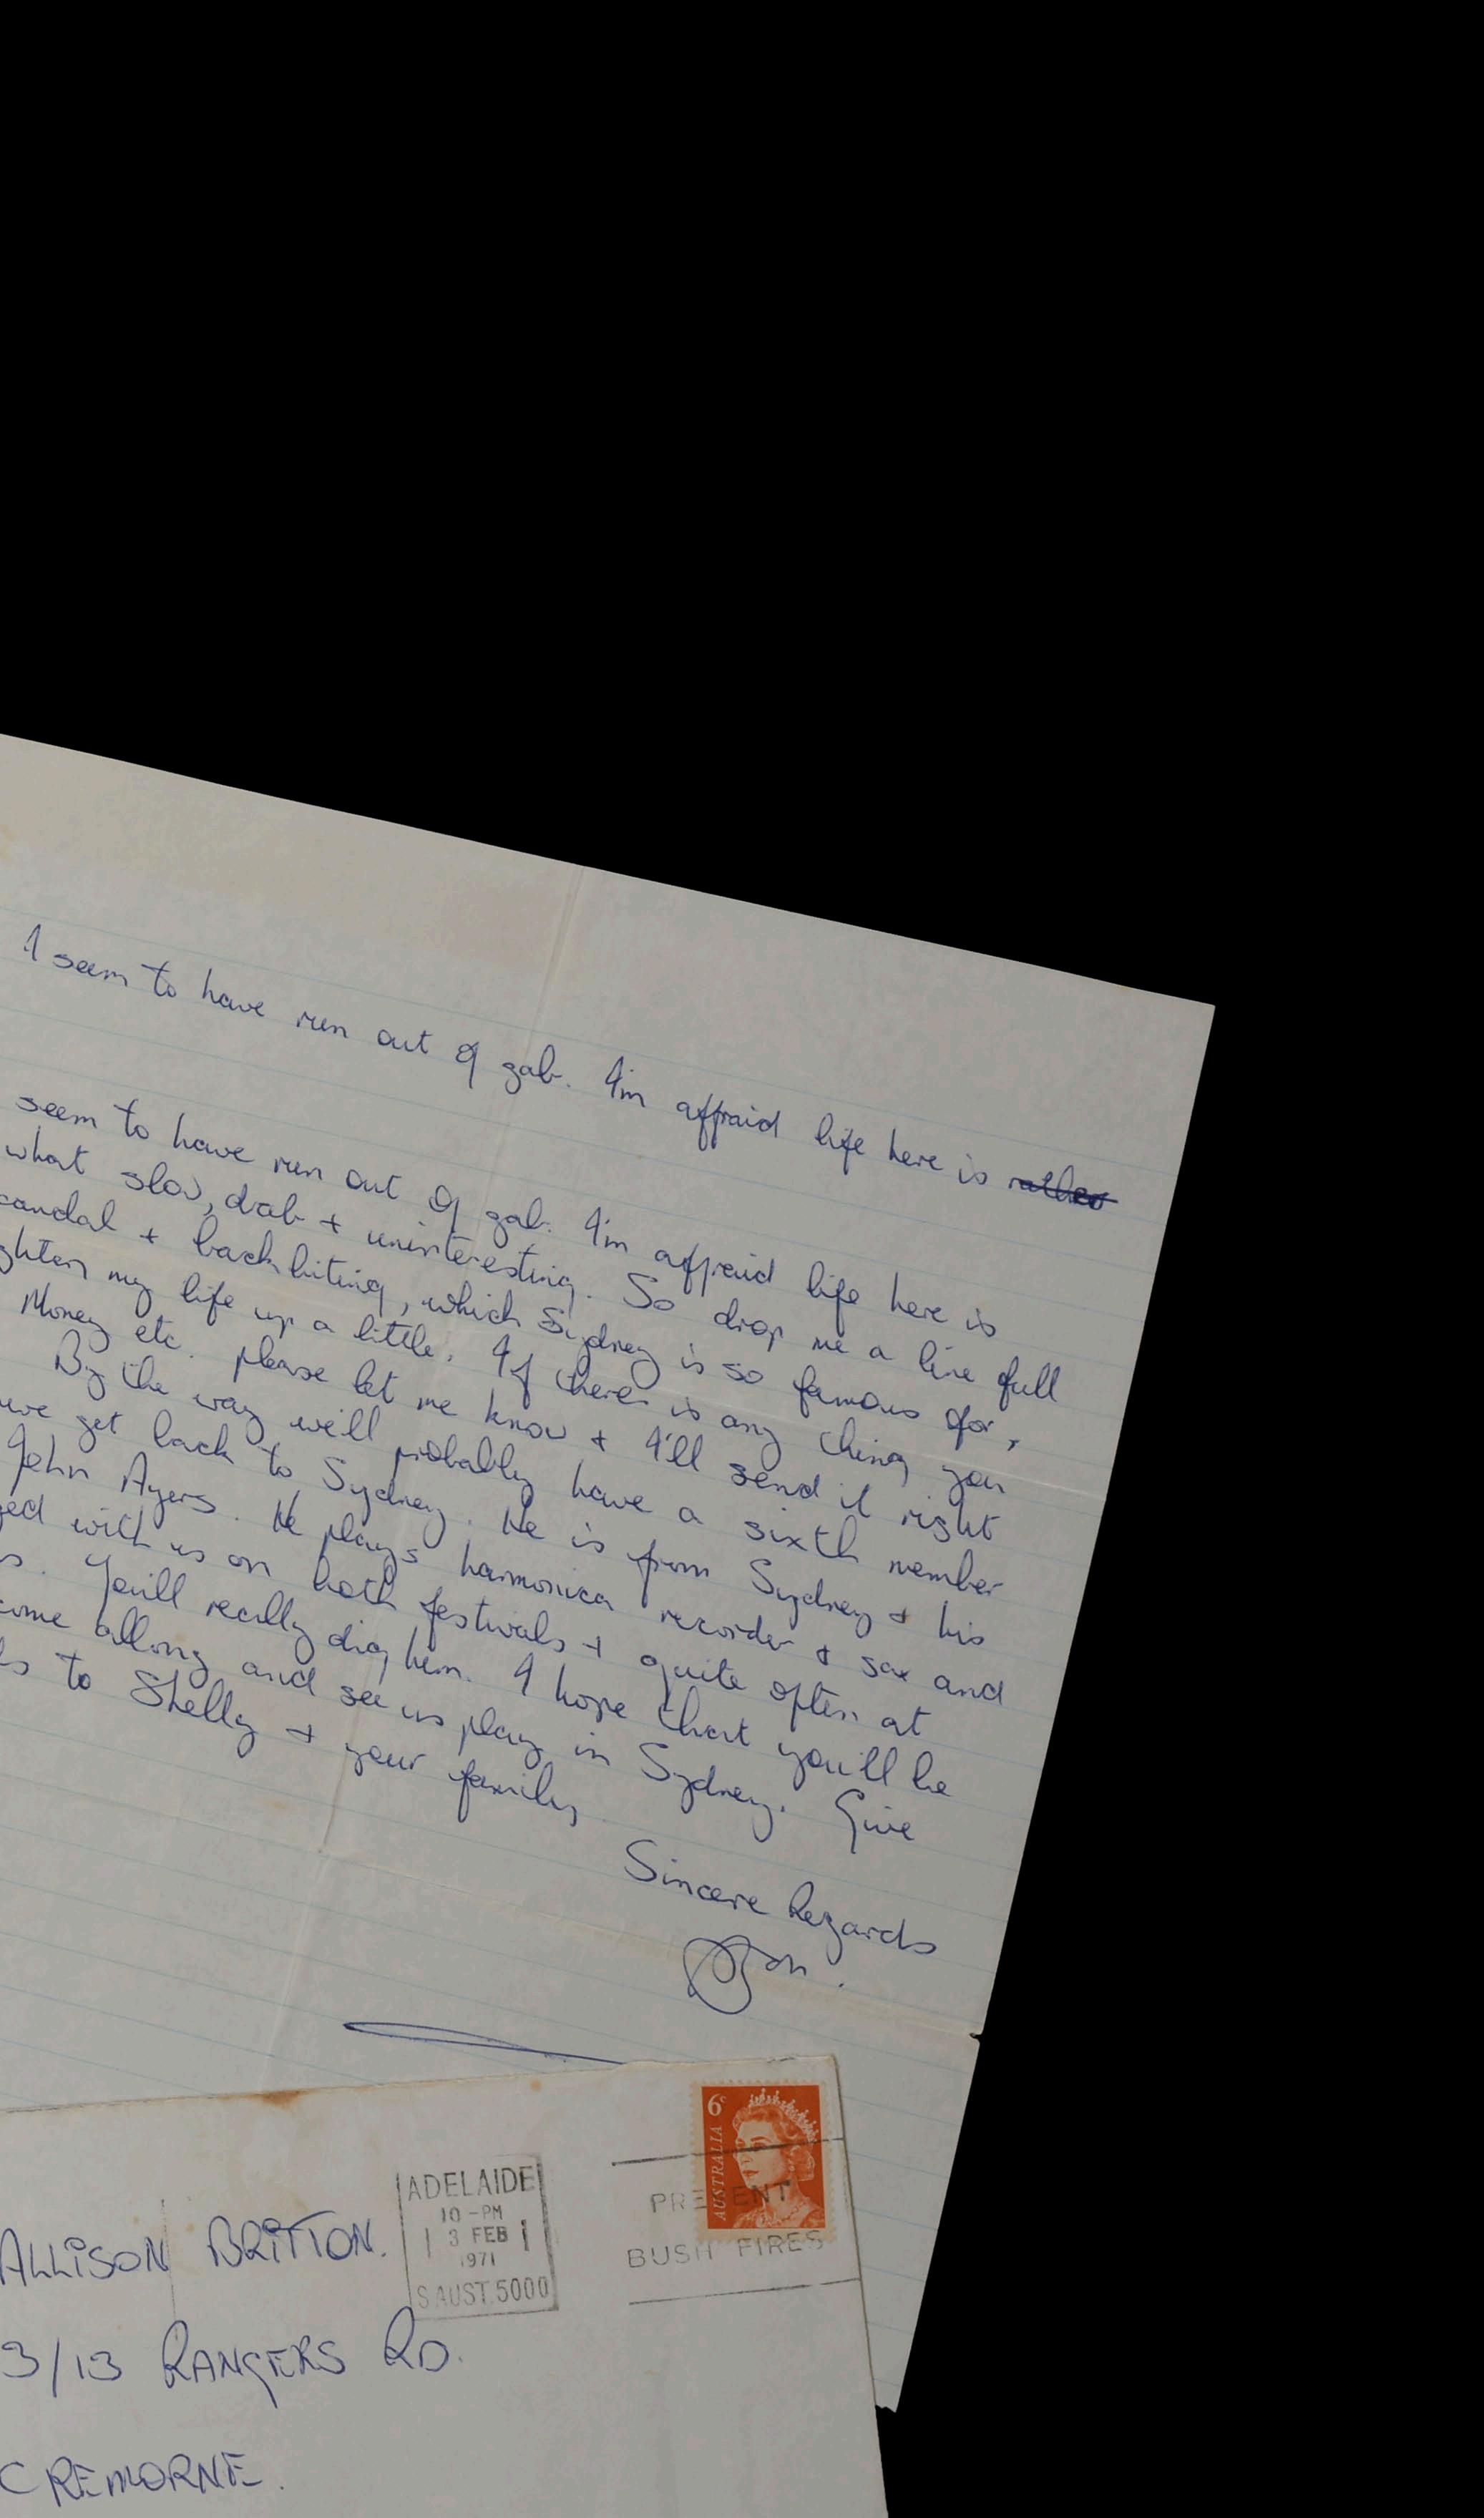 I seem to have run out of gab. I'm affraid life here is rather
seem to have run out of gab. I'm affraid life here is
what slow, drab + uninteresting. So drop me a line full
candal + backbiting, which Sydney is so famous for,
ghten my life up a little. If there is any thing you
Money etc. please let me know + I'll send it right
By the way we'll probably have a sixth member
we get back to Sydney. He is from Sydney & his
John Ayers. He plays harmonica recorder & sax and
ed with us on both festivals + quite often at
s. You'll really dig him. I hope that you'll be
come allong and see us play in Sydney. Give
ds to Shelly + your family
Sincere Regards
Bon.
6c
AUSTRALIA
ADELAIDE
10-PM
1 3 FEB 1
1971
S.AUST.5000
PREVENT
BUSH FIRES
ALLISON BRITTON.
3/13 RANGERS RD.
CREMORNE.